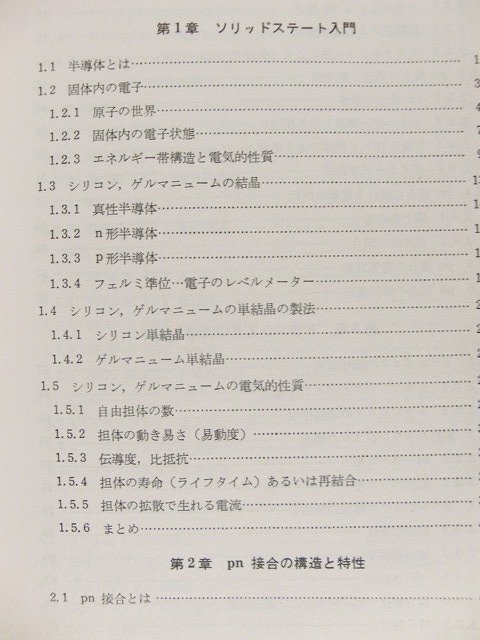 第1章 ソリッドステート入門
1.1 半導体とは
1.2 固体内の電子 3
1.2.1 原子の世界 4
1.2.2 固体内の電子状態 7
1.2.3 エネルギー帯構造と電気的性質 9
1.3 シリコン，ゲルマニュームの結晶
1.3.1 真性半導体
1.3.2 n形半導体
1.3.3 p形半導体
1.3.4 フェルミ準位…電子のレベルメーター
1.4 シリコン，ゲルマニュームの単結晶の製法
1.4.1 シリコン単結晶
1.4.2 ゲルマニューム単結晶
1.5 シリコン，ゲルマニュームの電気的性質
1.5.1 自由担体の数
1.5.2 担体の動き易さ（易動度）
1.5.3 伝導度，比抵抗
1.5.4 担体の寿命（ライフタイム）あるいは再結合
1.5.5 担体の拡散で生れる電流
1.5.6 まとめ
第2章 pn 接合の構造と特性
2.1 pn 接合とは